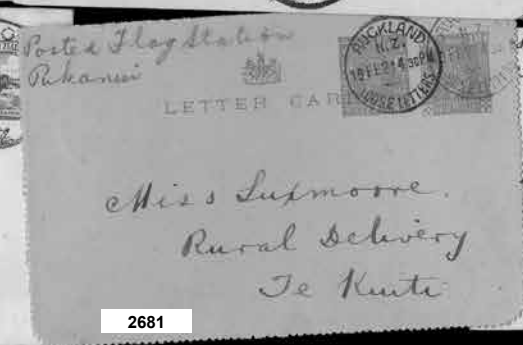 Posted Flag Station
Pukanui
LETTER CAR
AUCKLAND
N.Z.
LOOSE LETTERS
Miss Luxmoore.
Rural Delivery
Te Kuiti
2681